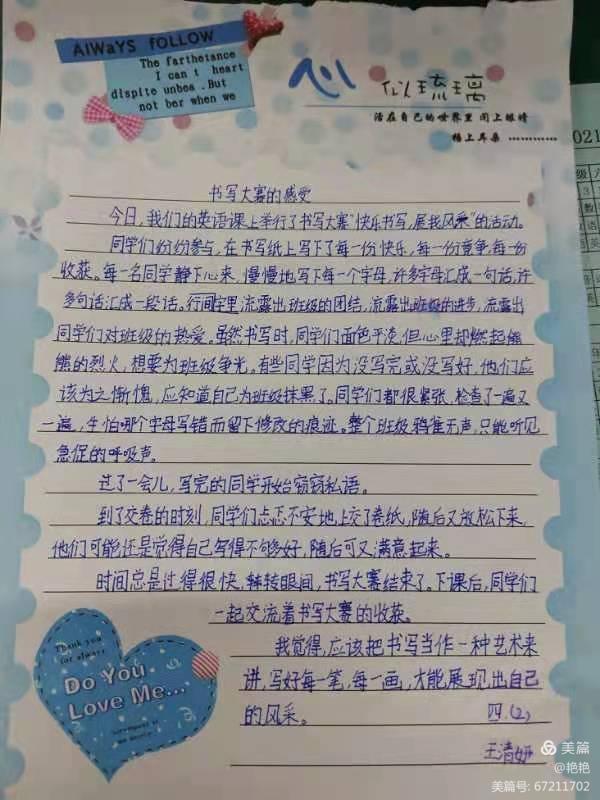 AlWaYS FOLLOW
The farthetance
I can t heart
dispite unbea . But
not ber when we
心 似琉璃
活在自己的世界里 闭上眼睛
捂上耳朵 …………
021
书写大赛的感受
今日,我们的英语课上举行了书写大赛“快乐书写,展我风采”的活动。
同学们纷纷参与,在书写纸上写下了每一份快乐,每一份竞争,每一份
收获。每一名同学静下心来,慢慢地写下每一个字母,许多字母汇成一句话,许
多句话汇成一段话。行间字里,流露出班级的团结,流露出班级的进步,流露出
同学们对班级的热爱。虽然书写时,同学们面色平淡,但心里却燃起熊
熊的烈火,想要为班级争光,有些同学因为没写完或没写好,他们应
该为之惭愧,应知道自己为班级抹黑了。同学们都很紧张,检查了一遍又
一遍,生怕哪个字母写错而留下修改的痕迹。整个班级鸦雀无声,只能听见
急促的呼吸声。
过了一会儿,写完的同学开始窃窃私语。
到了交卷的时刻,同学们忐忑不安地上交了卷纸,随后又放松下来,
他们可能还是觉得自己写得不够好,随后可又满意起来。
时间总是过得很快,转眼间,书写大赛结束了。下课后,同学们
一起交流着书写大赛的收获。
我觉得,应该把书写当作一种艺术来
讲,写好每一笔,每一画,才能展现出自己
的风采。 四.(2)
王清妍
Thank you
for always
Do You
Love Me...
美篇
@艳艳
美篇号: 67211702